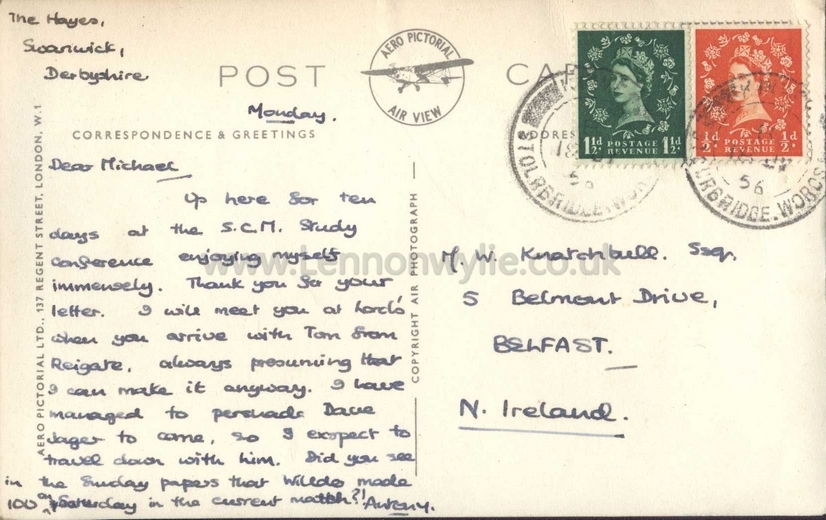 The Hayes,
Swanwick,
Derbyshire
POST CARD
AERO PICTORIAL
AIR VIEW
Monday.
CORRESPONDENCE & GREETINGS
Dear Michael
Up here for ten
days at the S.C.M. Study
conference enjoying myself
immensely. Thank you for your
letter. I will meet you at Lord's
when you arrive with Tom from
Reigate, always presuming that
I can make it anyway. I have
managed to persuade Dave
Jager to come, so I expect to
travel down with him. Did you see
in the Sunday papers that Willdo made
100 on Saturday in the current match?! Antony.
AERO PICTORIAL LTD., 137 REGENT STREET, LONDON, W.1
COPYRIGHT AIR PHOTOGRAPH
1½d POSTAGE REVENUE 1½d
½d POSTAGE REVENUE ½d
STOURBRIDGE. WORCS
56
STOURBRIDGE. WORCS
56
M. W. Knatchbull. Esq.
5 Belmont Drive,
BELFAST.
N. Ireland.
www.Lennonwylie.co.uk